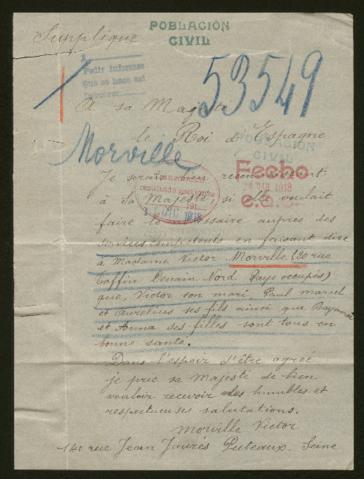 Supplique
POBLACIÓN
CIVIL
53549
A sa Majesté
le Roi d'Espagne
Morville
POBLACIÓN
CIVIL
Fecho
Je serais
reconnaissant
1918
à Sa Majesté si elle voulait
DIC 1918
faire le nécessaire auprès des
services compétents en faisant dire
à Madame Victor Morville (30 rue
Taffin Denain Nord Pays occupés)
que Victor son mari Paul Marcel
et Aurelius ses fils ainsi que
et Anna ses filles sont tous en
bonne santé.
Dans l'espoir d'être agréé
je prie sa Majesté de bien
vouloir recevoir des humbles et
respectueuses salutations.
Morville Victor
rue Jean Jaurés Puteaux. Seine